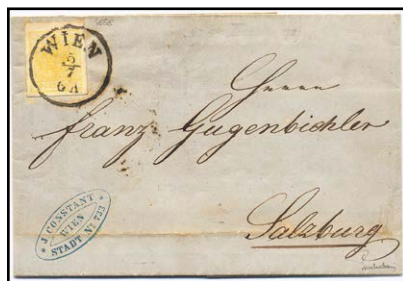 WIEN
5/7
6A
Herrn
Franz Gugenbichler
Salzburg
J. CONSTANT
WIEN
STADT No 733